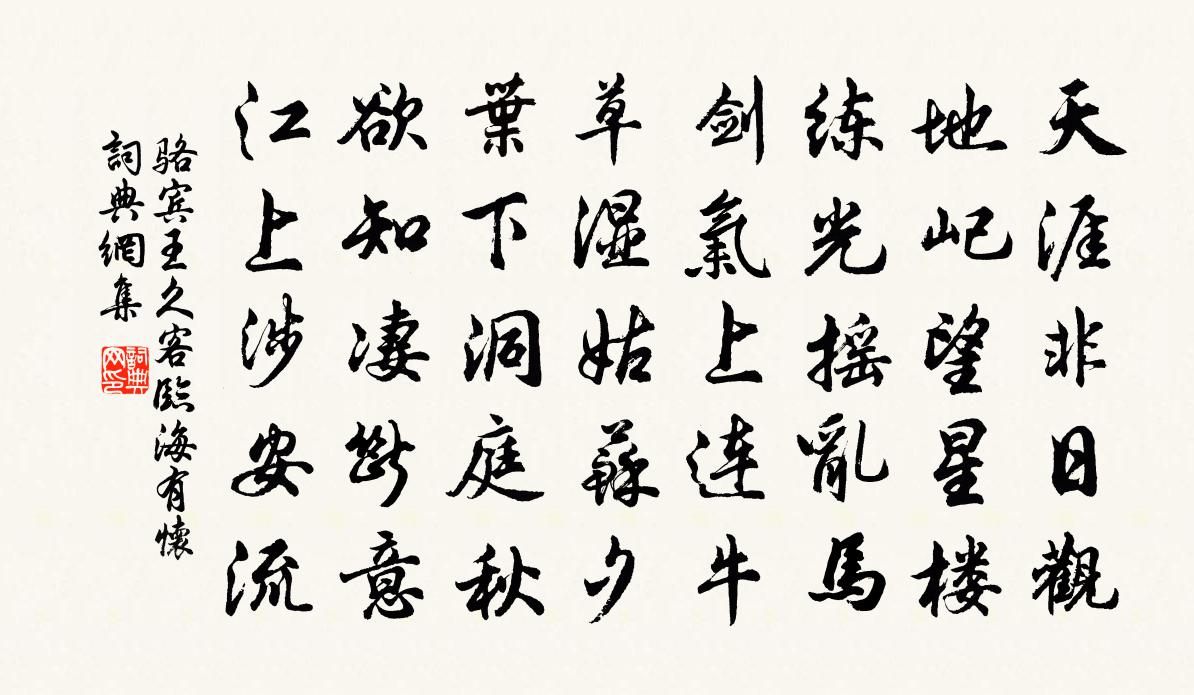 天涯非日觀
地屺望星楼
练光摇亂馬
剑氣上連牛
草濕姑蘇夕
葉下洞庭秋
欲知凄斷意
江上涉安流
骆宾王久客臨海有懷
詞典網集
詞典网印